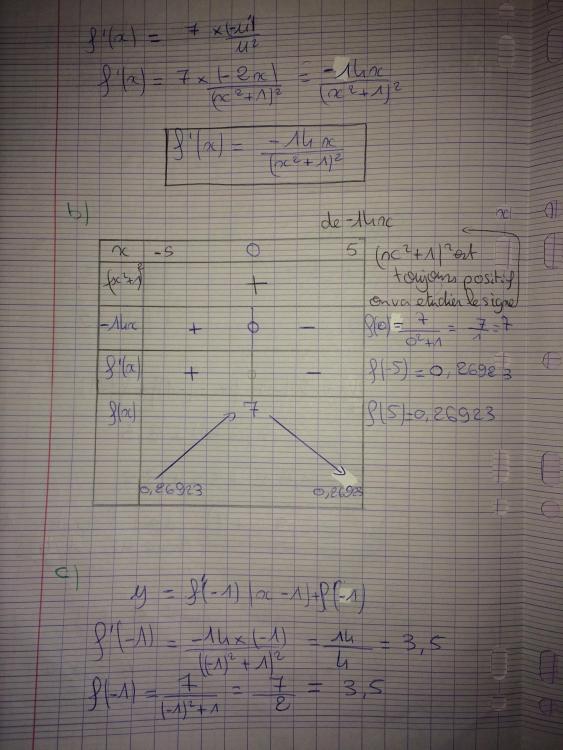 f'(x) = 7 × (-u')/u²
f'(x) = 7 × (-2x)/(x²+1)² = -14x/(x²+1)²
f'(x) = -14x/(x²+1)²
b)
de -14x
x -5 0 5
(x²+1)² +
-14x + 0 -
f'(x) + 0 -
f(x) 7
0,26923 0,26923
(x²+1)² est
toujours positif
on va etudier le signe
f(0) = 7/(0²+1) = 7/1 = 7
f(-5) = 0,26923
f(5) = 0,26923
c)
y = f'(-1) (x -1)+f(-1)
f'(-1) = -14×(-1)/((-1)²+1)² = 14/4 = 3,5
f(-1) = 7/((-1)²+1) = 7/2 = 3,5